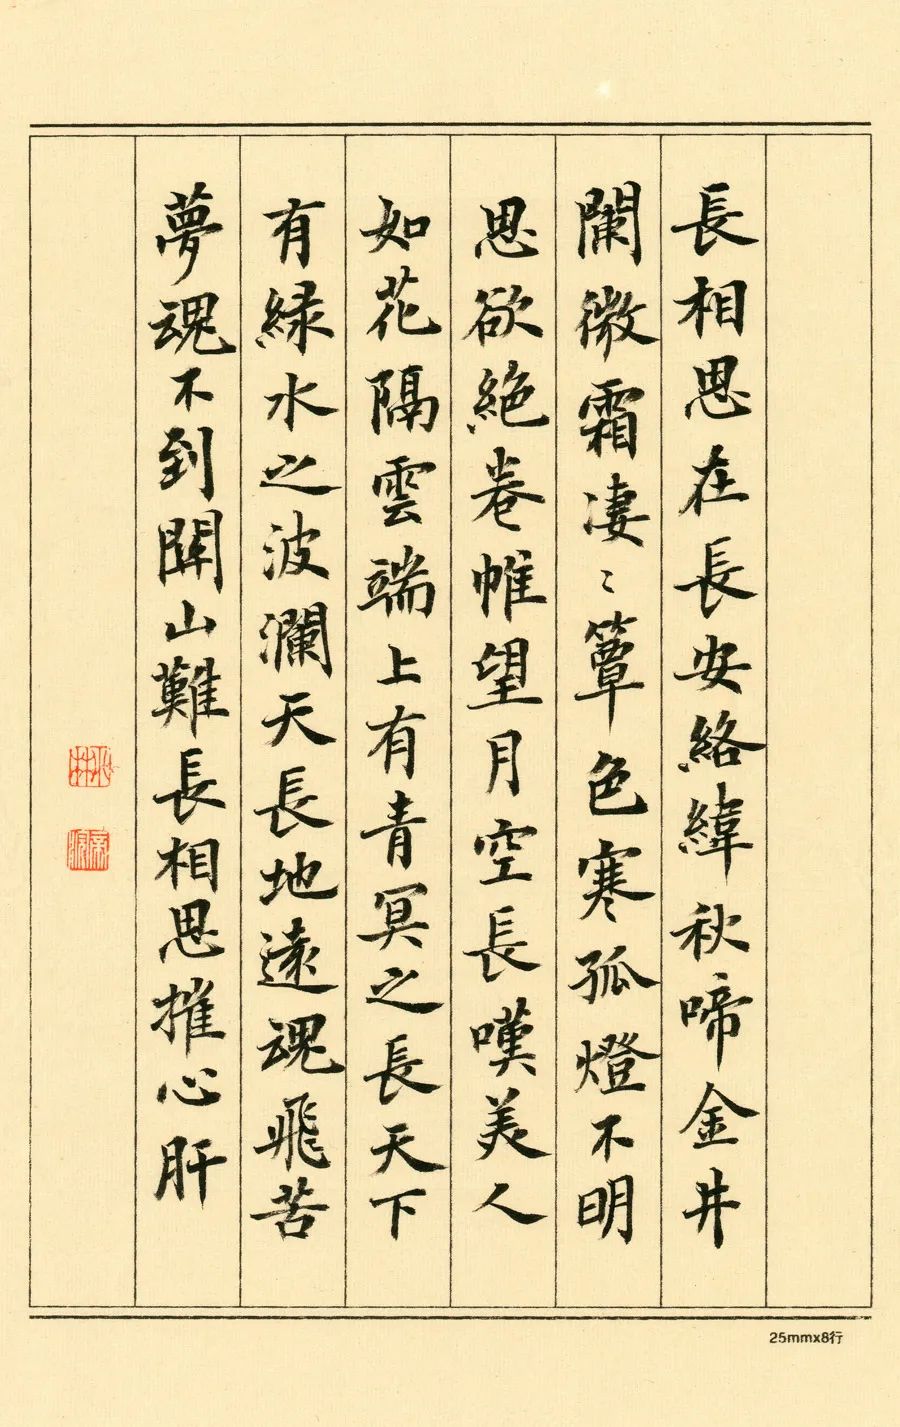 長相思在長安絡緯秋啼金井
闌微霜凄〻簟色寒孤燈不明
思欲絶卷帷望月空長嘆美人
如花隔雲端上有青冥之長天下
有緑水之波瀾天長地遠魂飛苦
夢魂不到關山難長相思摧心肝
25mmx8行